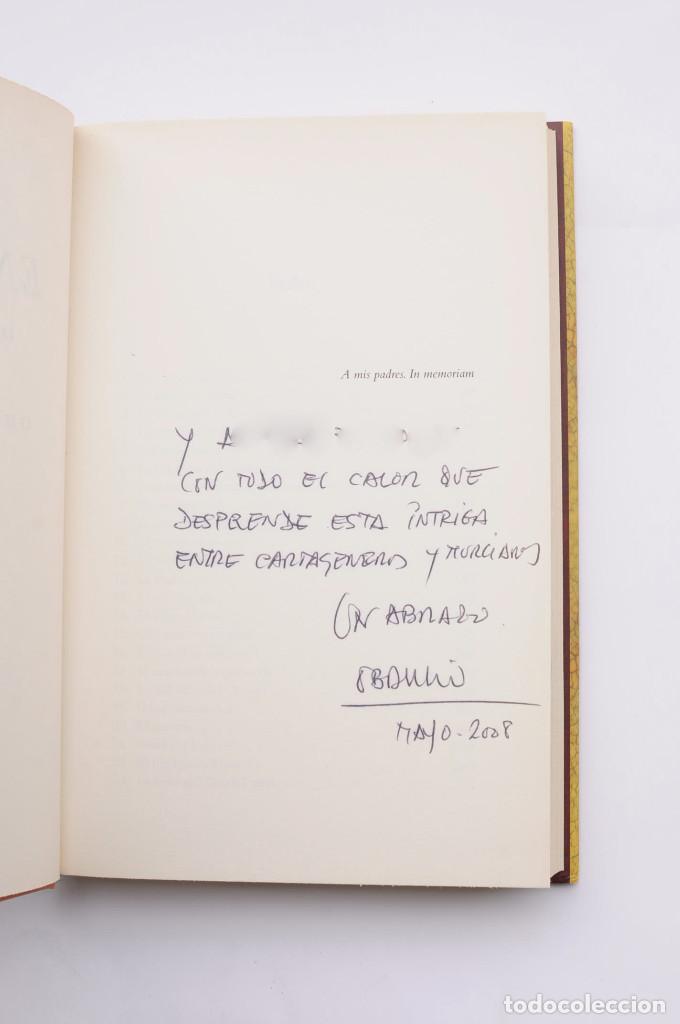 A mis padres. In memoriam
Y A
CON TODO EL CALOR QUE
DESPRENDE ESTA INTRIGA
ENTRE CARTAGENEROS Y MURCIANOS
UN ABRAZO.
MAYO-2008
todocoleccion